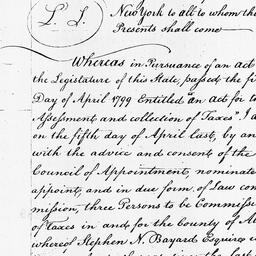 L.S.
New York to all to whom the
Presents shall come
Whereas in Pursuance of an act
the Legislature of this State, passed the fi
Day of April 1799 Entitled an act for t
Assessment and collection of Taxes"
on the fifth day of April last, by an
with the advice and consent of the
Council of Appointment, nominate
appoint, and in due form of Law com
mission, three Persons to be Commisse
of Taxes in and for the County of Al
whereof Stephen N. Bayard Esquire